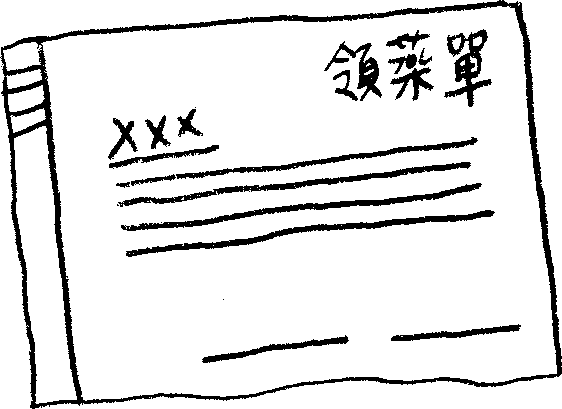 領藥單
XXX